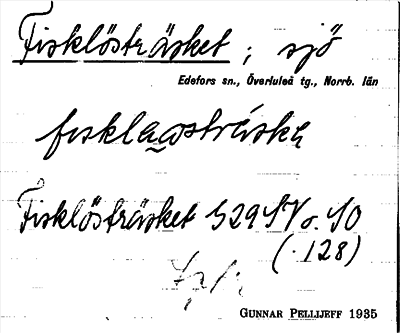 Fisklösträsket ; sjö
Edefors sn., Överluleå tg., Norrb. län
fisklaosträskä
Fisklösträsket S29SV o. SO
(· 128)
GUNNAR PELLIJEFF 1935